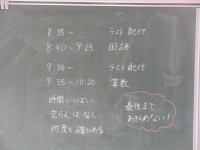 8:35～ テスト配付
8:40～9:25 国語
9:30～ テスト配付
9:35～10:20 算数
時間いっぱい
定らんばなし
何度も確かめる
最後まで
あきらめない!